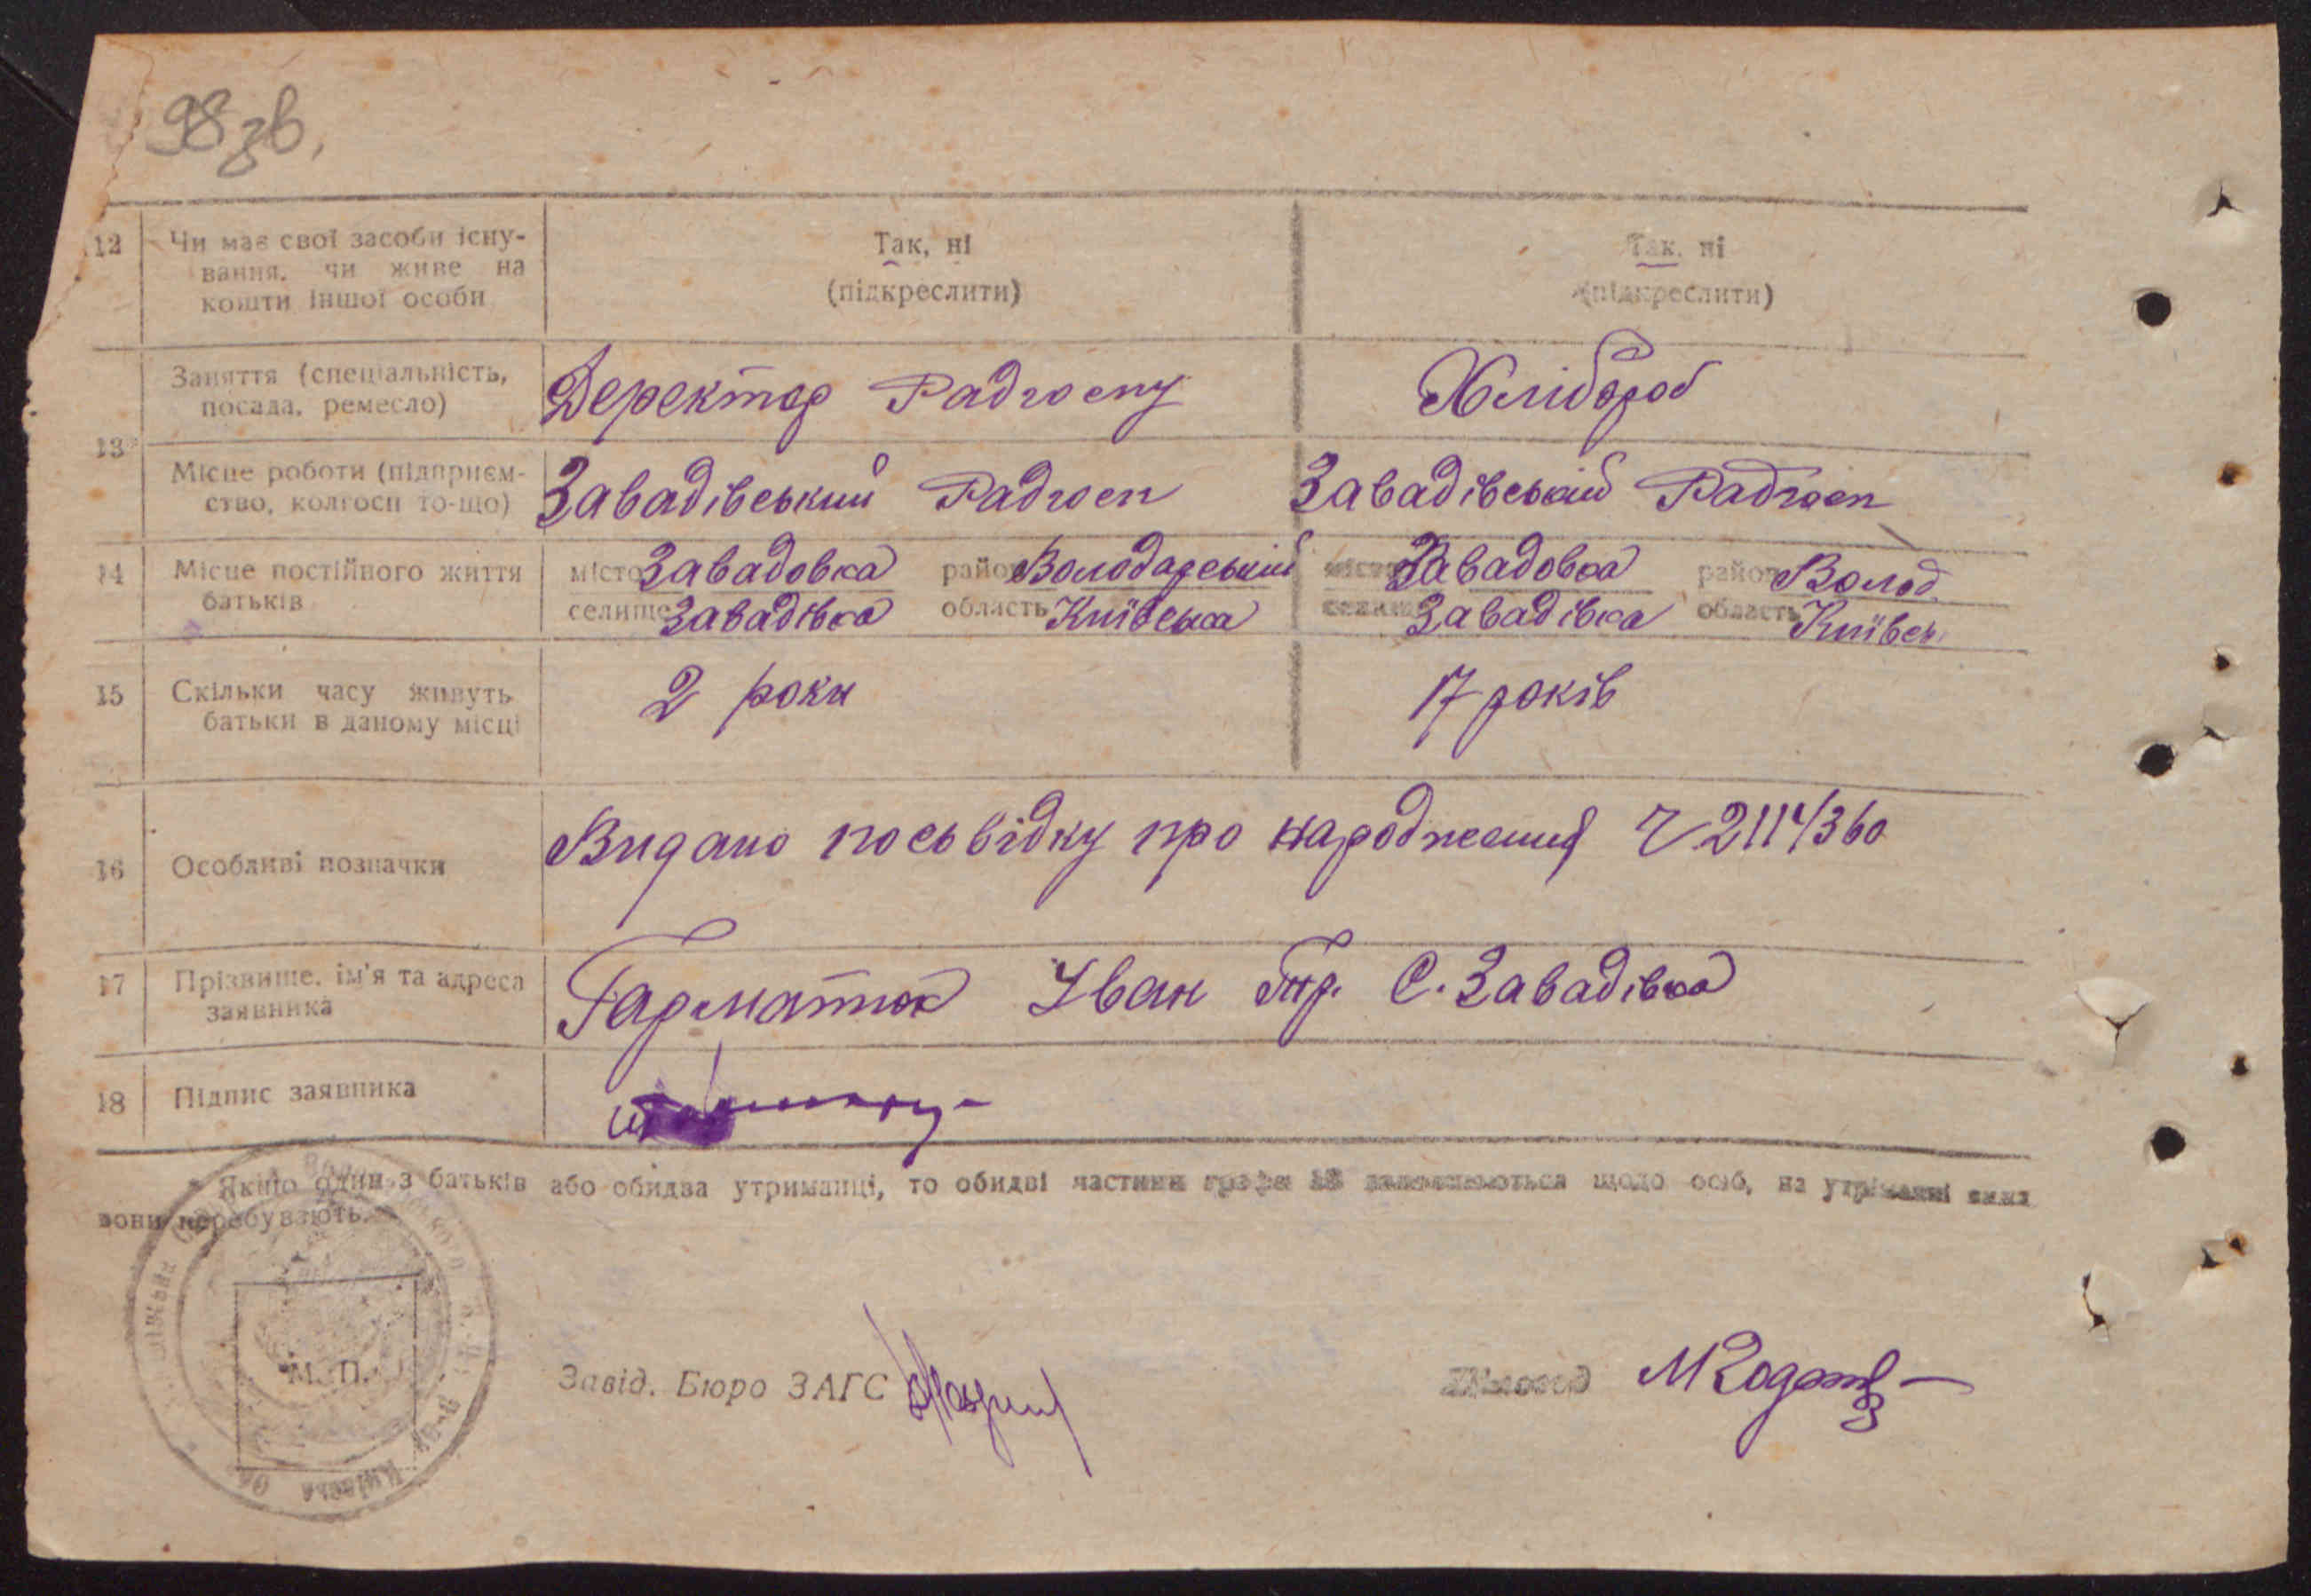 98 зв,
12 Чи має свої засоби існу-
вання, чи живе на
кошти іншої особи
Так, ні
(підкреслити)
Так, ні
(підкреслити)
13
Заняття (спеціальність,
посада, ремесло)
Деректор Радгоспу
Хлібороб
Місце роботи (підприєм-
ство, колгосп то-що)
Завадівський Радгосп
Завадівський Радгосп
14 Місце постійного життя
батьків
місто Завадовка район Володарський
селище Завадівка область Київська
місто Завадовка район Волод.
селище Завадівка область Київськ
15 Скільки часу живуть
батьки в даному місці
2 роки
17 років
16 Особливі позначки
Видано посьвідку про народження Ч 2114/360
17 Прізвище, ім'я та адреса
заявника
Гарматюк Іван С. Завадівка
18 Підпис заявника
Якщо один з батьків або обидва утриманці, то обидві частини графи заповнюються щодо осіб, на утриманні яких
вони перебувають.
М. П.
Завід. Бюро ЗАГС
Діловод